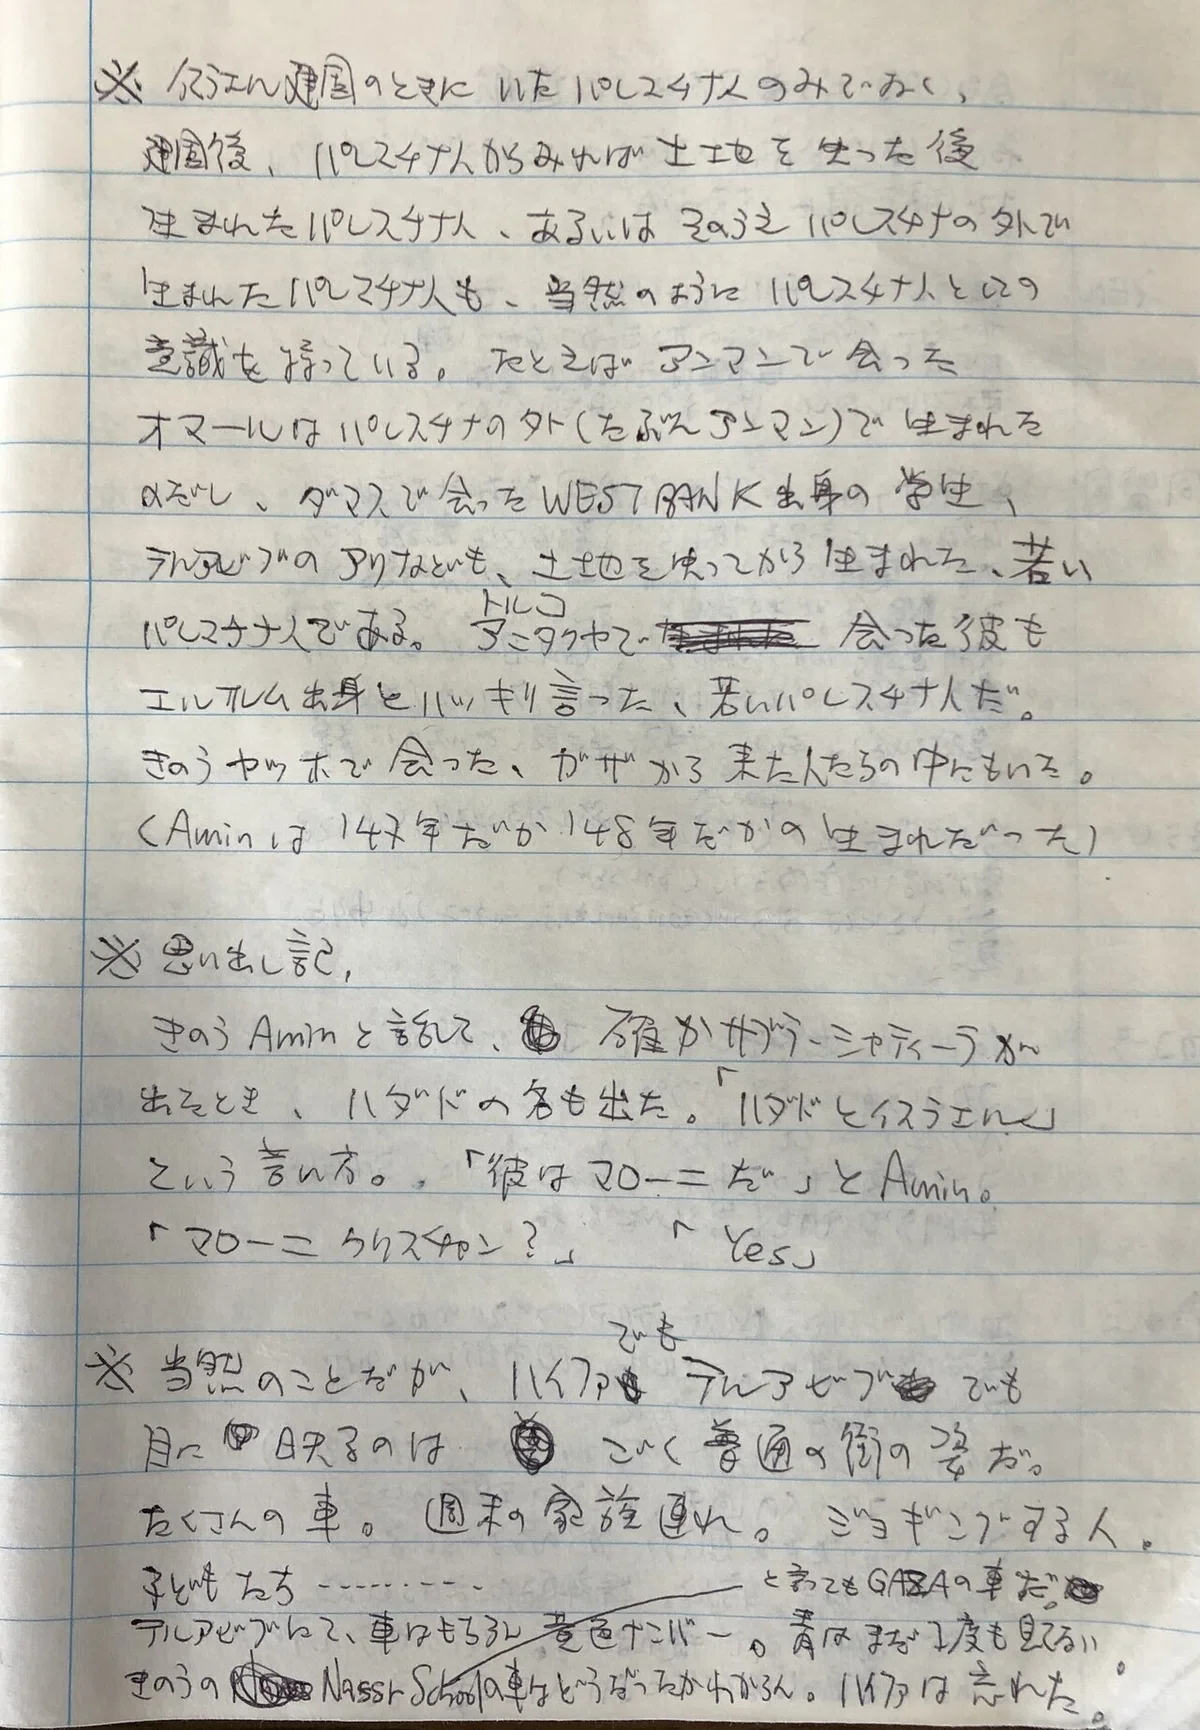 ※ イスラエル建国のときにいたパレスチナ人のみでなく、
建国後、パレスチナ人からみれば土地を失った後
生まれたパレスチナ人、あるいはそのうえパレスチナの外で
生まれたパレスチナ人も、当然のようにパレスチナ人としての
意識を持っている。たとえばアンマンで会った
オマールはパレスチナの外(たぶんアンマン)で生まれた
はずだし、ダマスで会ったWEST BANK出身の学生、
テルアビブのアリなども、土地を失ってから生まれた、若い
トルコ
パレスチナ人である。アンタクヤで 会った彼も
エルサレム出身とハッキリ言った、若いパレスチナ人だ。
きのうヤッホで会った、ガザから来た人たちの中にもいた。
(Aminは 147年だか148年だかの生まれだった)
※ 思い出し記,
きのうAminと話して、確かサブラ・シャティーラが
出たとき、ハダドの名も出た。「ハダドとイスラエル」
という言い方。「彼はマローニだ」とAmin。
「マローニクリスチャン?」 「Yes」
でも
※ 当然のことだが、ハイファ テルアビブ でも
目に 映るのは ごく普通の街の姿だ。
たくさんの車。週末の家族連れ。ジョギングする人。
子どもたち ---------
と言ってもGAZAの車だ。
テルアビブにて、車はもちろん黄色ナンバー。青はまだ1度も見てない
きのうの Nassr Schoolの車はどうなったかわからん。ハイファは忘れた。